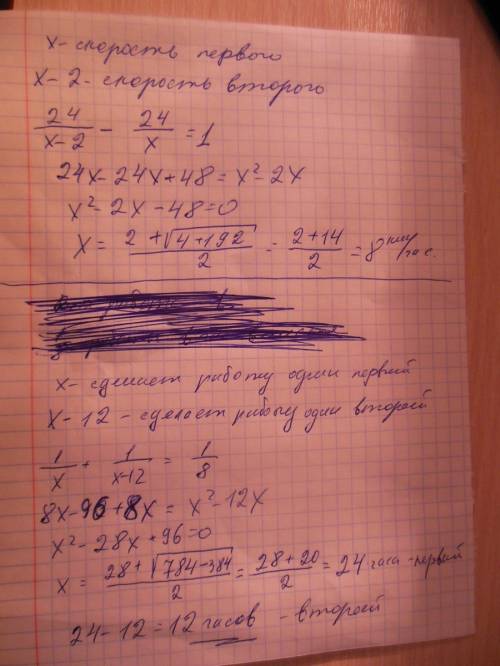 х- скорость первого
х-2- скорость второго
24/(х-2) - 24/х = 1
24х-24х+48 = х²-2х
х²-2х-48=0
х = (2+√(4+192))/2 = (2+14)/2 = 8 км/час.
х- сделает работу один первый
х-12 - сделает работу один второй
1/х + 1/(х-12) = 1/8
8х-96+8х = х²-12х
х²-28х+96=0
х = (28+√(784-384))/2 = (28+20)/2 = 24 часа -первый
24-12=12 часов - второй